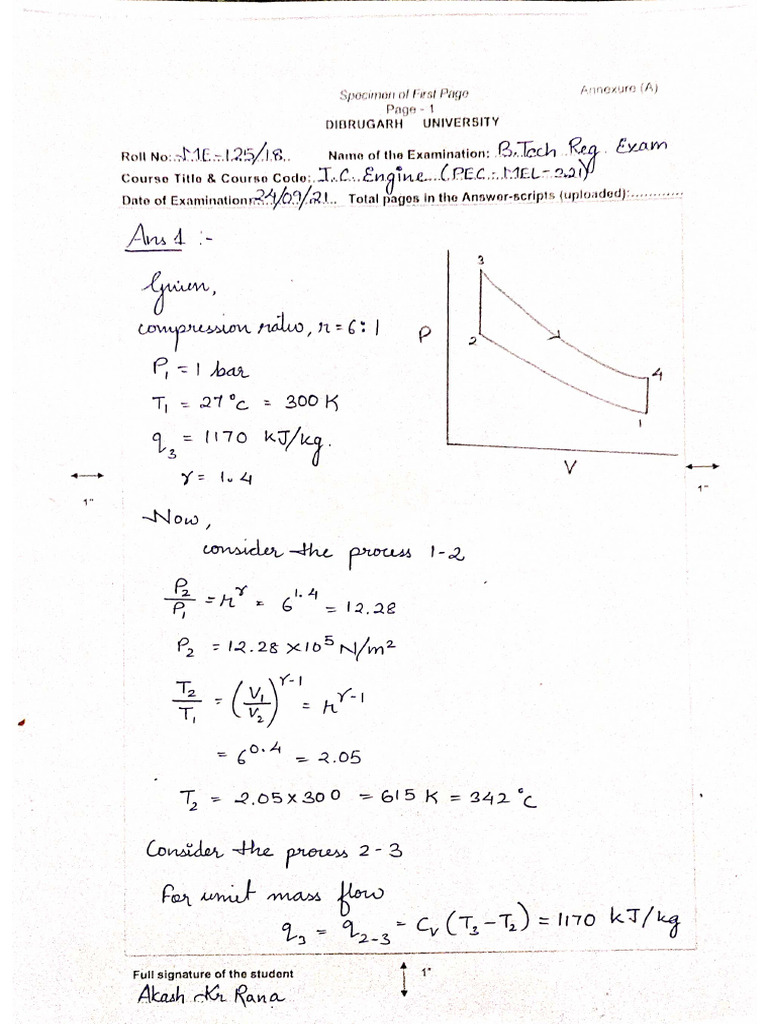 Specimen of First Page
Annexure (A)
Page - 1
DIBRUGARH UNIVERSITY
Roll No: ME-125/18 Name of the Examination: B.Tech Reg. Exam
Course Title & Course Code: I.C. Engine (PEC-MEL-221)
Date of Examination: 24/09/21 Total pages in the Answer-scripts (uploaded):............
Ans 1 :-
Given,
compression ratio, r = 6:1
P₁ = 1 bar
T₁ = 27°C = 300 K
q₃ = 1170 KJ/kg.
γ = 1.4
3
P
2
4
1
V
1"
1"
Now,
consider the process 1-2
P₂/P₁ = r^γ = 6^1.4 = 12.28
P₂ = 12.28 × 10⁵ N/m²
T₂/T₁ = (V₁/V₂)^γ-1 = r^γ-1
= 6^0.4 = 2.05
T₂ = 2.05×300 = 615 K = 342 °C
Consider the process 2-3
For unit mass flow
q₃ = q₂₋₃ = Cᵥ (T₃-T₂) = 1170 KJ/kg
Full signature of the student
1"
Akash Kr Rana